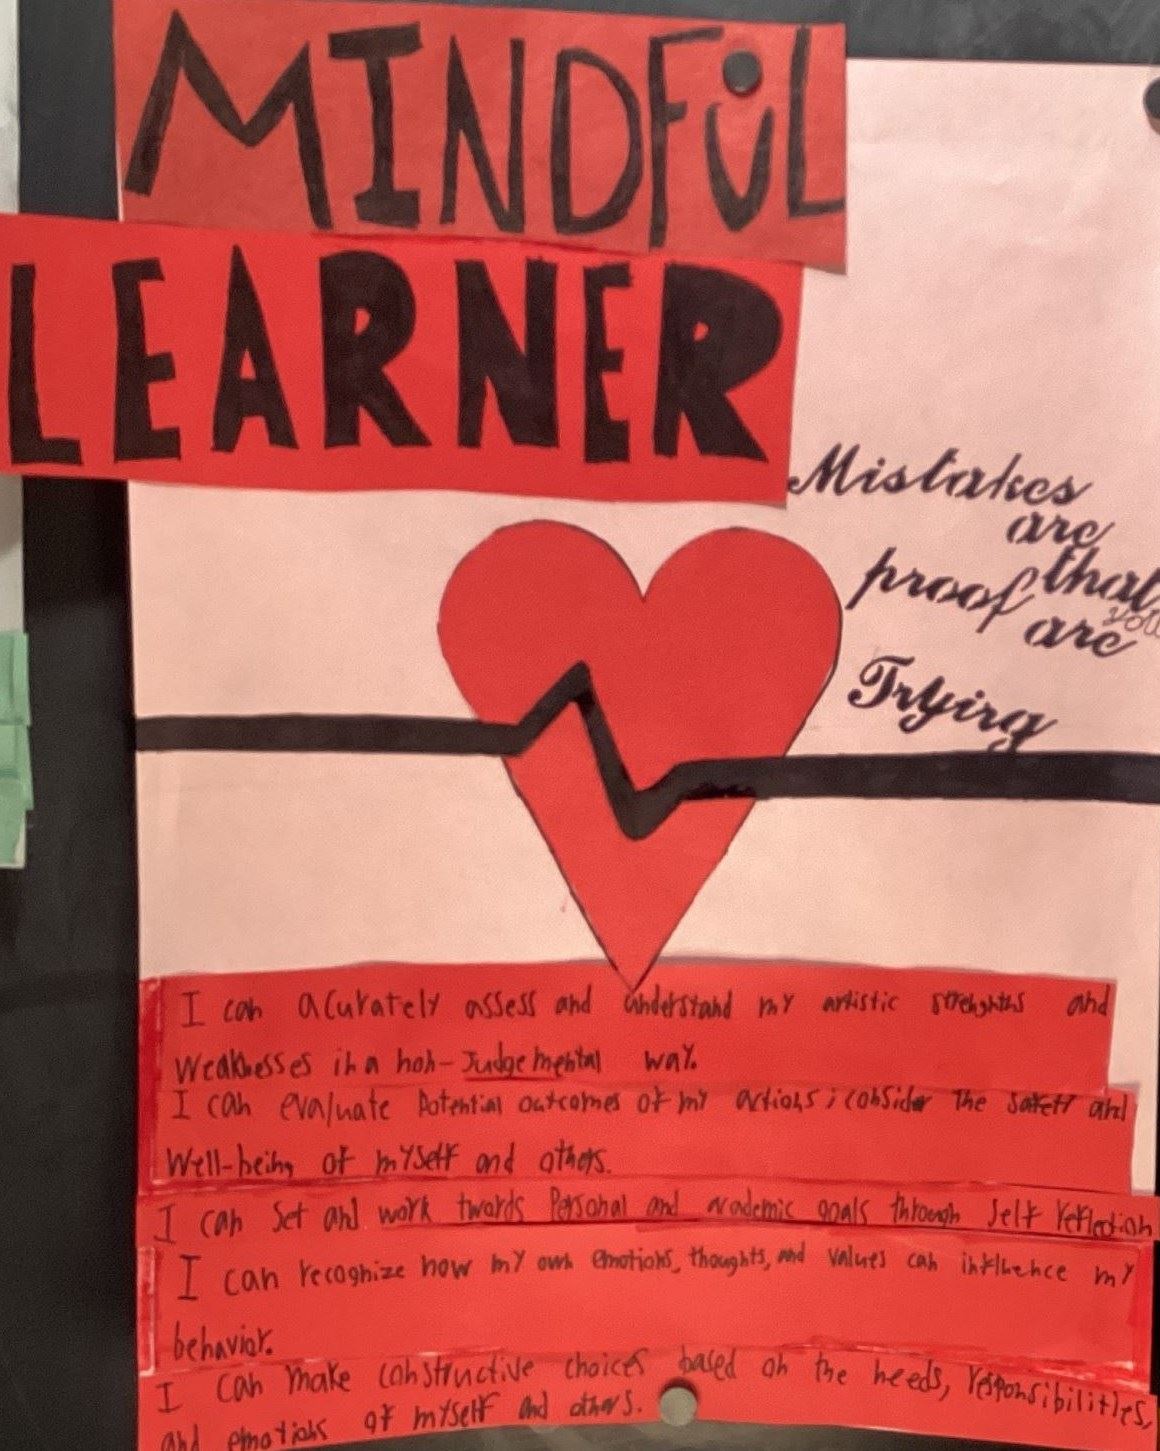 MINDFUL
LEARNER
Mistakes
are
proof that
you
are
Trying
I can acurately assess and understand my artistic strenghths and
weaknesses in a non-Judgemental way.
I can evaluate Potential outcomes of my actions; consider the safety and
Well-being of myself and others.
I can set and work twards Personal and academic goals through self reflection
I can recognize how my own emotions, thoughts, and values can influence my
behavior.
I can make constructive choices based on the needs, responsibilities,
and emotions of myself and others.